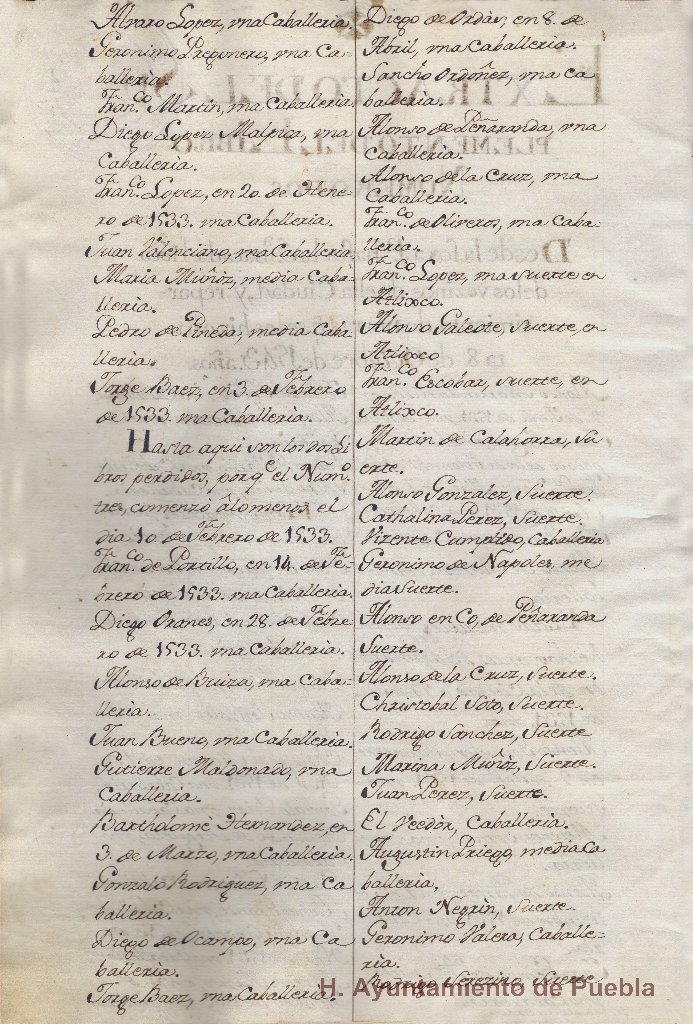 Alvaro Lopez, vna Caballeria.
Geronimo Pregonero, vna Ca
balleria.
Fran.co Martin, vna Caballeria.
Diego Lopez Malpica, vna
Caballeria.
Fran.co Lopez, en 20. de Hene-
ro de 1533. vna Caballeria.
Juan Valenciano, vna Caballeria
Maria Muñòz, media Caba
lleria.
Pedro de Pineda, media Caba
lleria.
Jorge Baez, en 3. de Febrero
de 1533. vna Caballeria.
Hasta aqui son los dos Li
bros perdidos, porq.e el Num.o
tres, comenzò âlo menos el
dia 10. de Febrero de 1533.
Fran.co de Portillo, en 14. de Fe-
brero de 1533. vna Caballeria.
Diego Oranes, en 28. de Febre
ro de 1533. vna Caballeria.
Alonso de Buiza, vna Caba-
lleria.
Juan Bueno, vna Caballeria.
Gutierre Maldonado, vna
Caballeria.
Bartholomè Hernandez, en
3. de Marzo, vna Caballeria.
Gonzalo Rodriguez, vna Ca
balleria.
Diego de Ocampo, vna Ca
balleria.
Jorge Baez, vna Caballeria.
Diego de Ordàs, en 8. de
Abril, vna Caballeria.
Sancho Ordoñez, vna Ca
balleria.
Alonso de Peñaranda, vna
Caballeria.
Alonso de la Cruz, vna
Caballeria.
Fran.co de Oliveros, vna Caba-
lleria.
Fran.co Lopez, vna Suerte en
Atlixco.
Alonso Galeote, Suerte, en
Atlixco
Fran.co Escobar, suerte, en
Atlixco.
Martin de Calahorra, Su
erte.
Alonso Gonzalez, Suerte.
Cathalina Perez, Suerte.
Vizente Cumplido, Caballeria
Geronimo de Napoles, me
dia Suerte.
Alonso en Co, de Peñaranda
Suerte.
Alonso de la Cruz, Suerte.
Christobal Soto, Suerte.
Rodrigo Sanchez, Suerte
Marina Muñòz, Suerte.
Juan Perez, Suerte.
El Veedòr, Caballeria.
Augustin Priego, media Ca
balleria,
Anton Negrin, Suerte.
Geronimo Valera, Caballe-
ria.
Rodrigo Serezino, Suerte
H. Ayuntamiento de Puebla